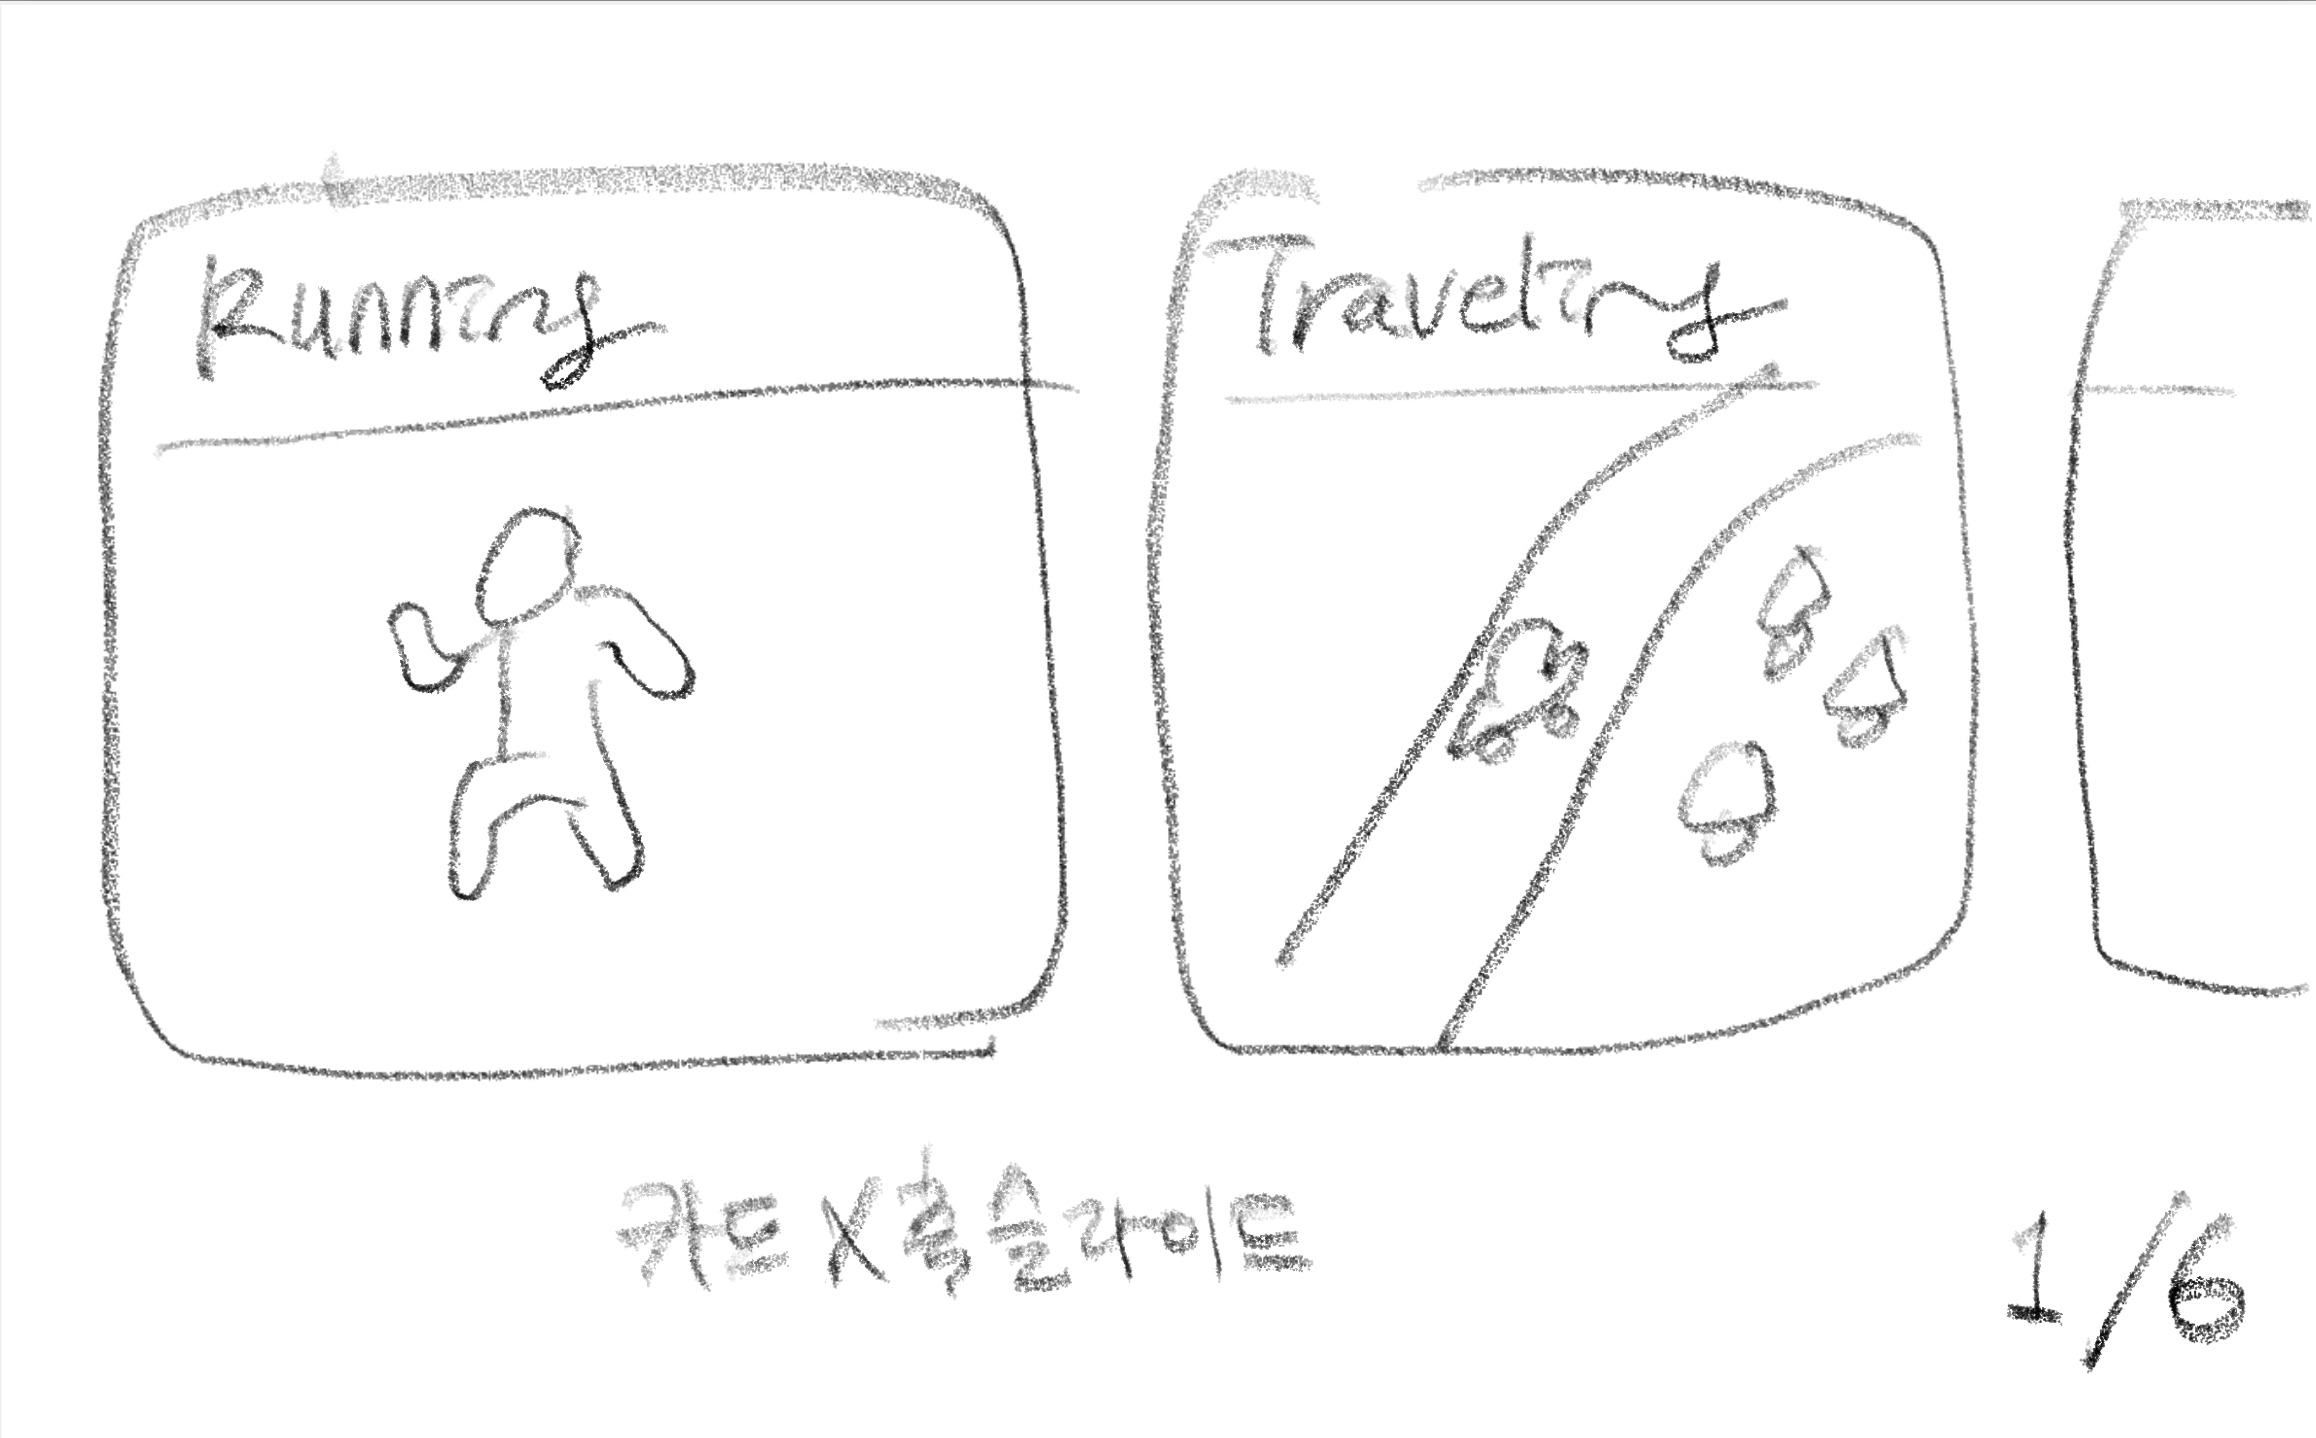 Running
Traveling
카드 X축 슬라이드
1/6